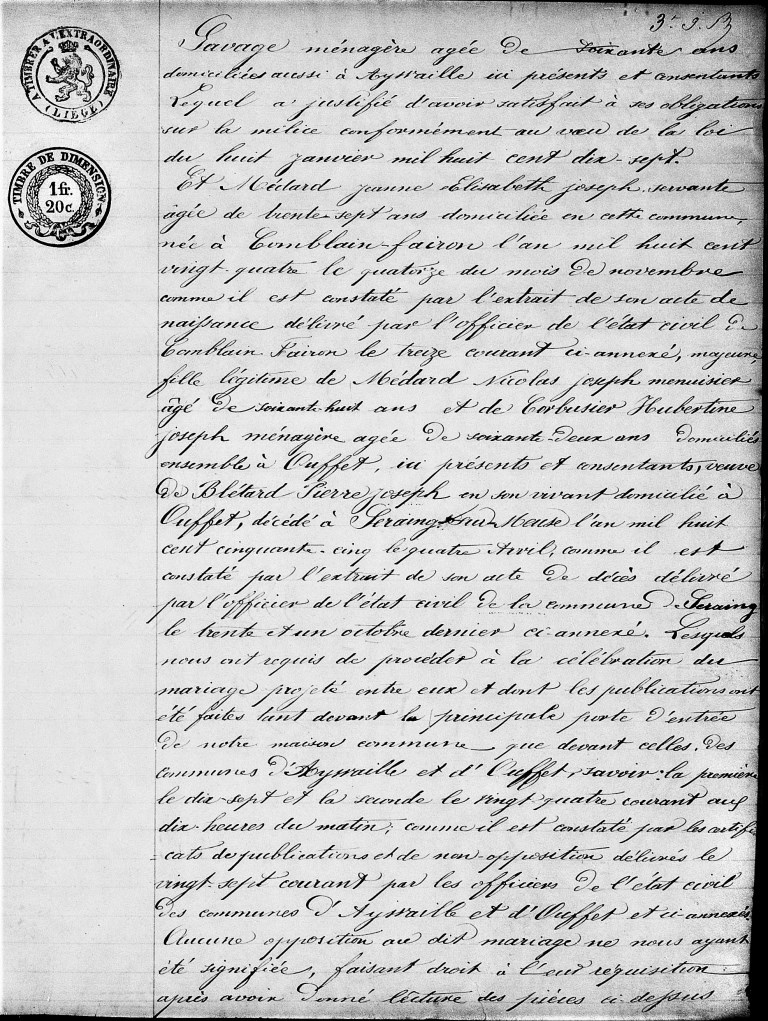 3. 9. 13
A TIMBRER A L'EXTRAORDINAIRE
(LIÉGE)
TIMBRE DE DIMENSION
1 fr.
20 c.
Gavage ménagère agée de soixante ans
domiciliés aussi à Aywaille ici présents et consentants
Lequel a justifié d'avoir satisfait à ses obligations
sur la milice conformément au vœu de la loi
du huit janvier mil huit cent dix-sept.
Et Médard Jeanne Elisabeth joseph servante
âgée de trente-sept ans domiciliée en cette commune,
née à Comblain-fairon l'an mil huit cent
vingt-quatre le quatorze du mois de novembre
comme il est constaté par l'extrait de son acte de
naissance délivré par l'officier de l'état civil de
Comblain-Fairon le treize courant ci-annexé, majeure,
fille légitime de Médard Nicolas joseph menuisier
âgé de soixante-huit ans et de Corbusier Hubertine
joseph ménagère agée de soixante-deux ans domiciliés
ensemble à Ouffet, ici présents et consentants, veuve
de Blétard Pierre joseph en son vivant domicilié à
Ouffet, décédé à Seraing-sur-Meuse l'an mil huit
cent cinquante-cinq le quatre Avril, comme il est
constaté par l'extrait de son acte de décès délivré
par l'officier de l'état civil de la commune de Seraing
le trente et un octobre dernier ci-annexé. Lesquels
nous ont requis de procéder à la célébration du
mariage projeté entre eux et dont les publications ont
été faites tant devant la principale porte d'entrée
de notre maison commune que devant celles des
communes d'Aywaille et d'Ouffet, savoir: la première
le dix-sept et la seconde le vingt quatre courant aux
dix heures du matin; comme il est constaté par les certifi
-cats de publications et de non-opposition délivrés le
vingt-sept courant par les officiers de l'état civil
des communes d'Aywaille et d'Ouffet et ci-annexés.
Aucune opposition au dit mariage ne nous ayant
été signifiée, faisant droit à leur réquisition
après avoir donné lecture des pièces ci-dessus